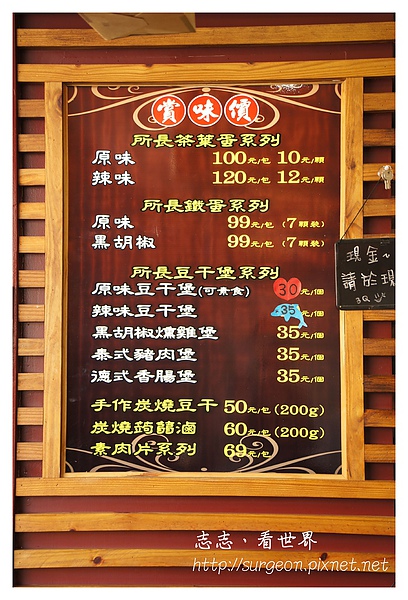 賞味價
所長茶葉蛋系列
原味 100元/包 10元/顆
辣味 120元/包 12元/顆
所長鐵蛋系列
原味 99元/包 (7顆裝)
黑胡椒 99元/包 (7顆裝)
所長豆干堡系列
原味豆干堡(可素食) 30元/個
辣味豆干堡 35元/個
黑胡椒燻雞堡 35元/個
泰式豬肉堡 35元/個
德式香腸堡 35元/個
手作炭燒豆干 50元/包 (200g)
炭燒蒟蒻滷 60元/包 (200g)
素肉片系列 69元/包
現金~
請於現
3Q
志志、看世界
http://surgeon.pixnet.net